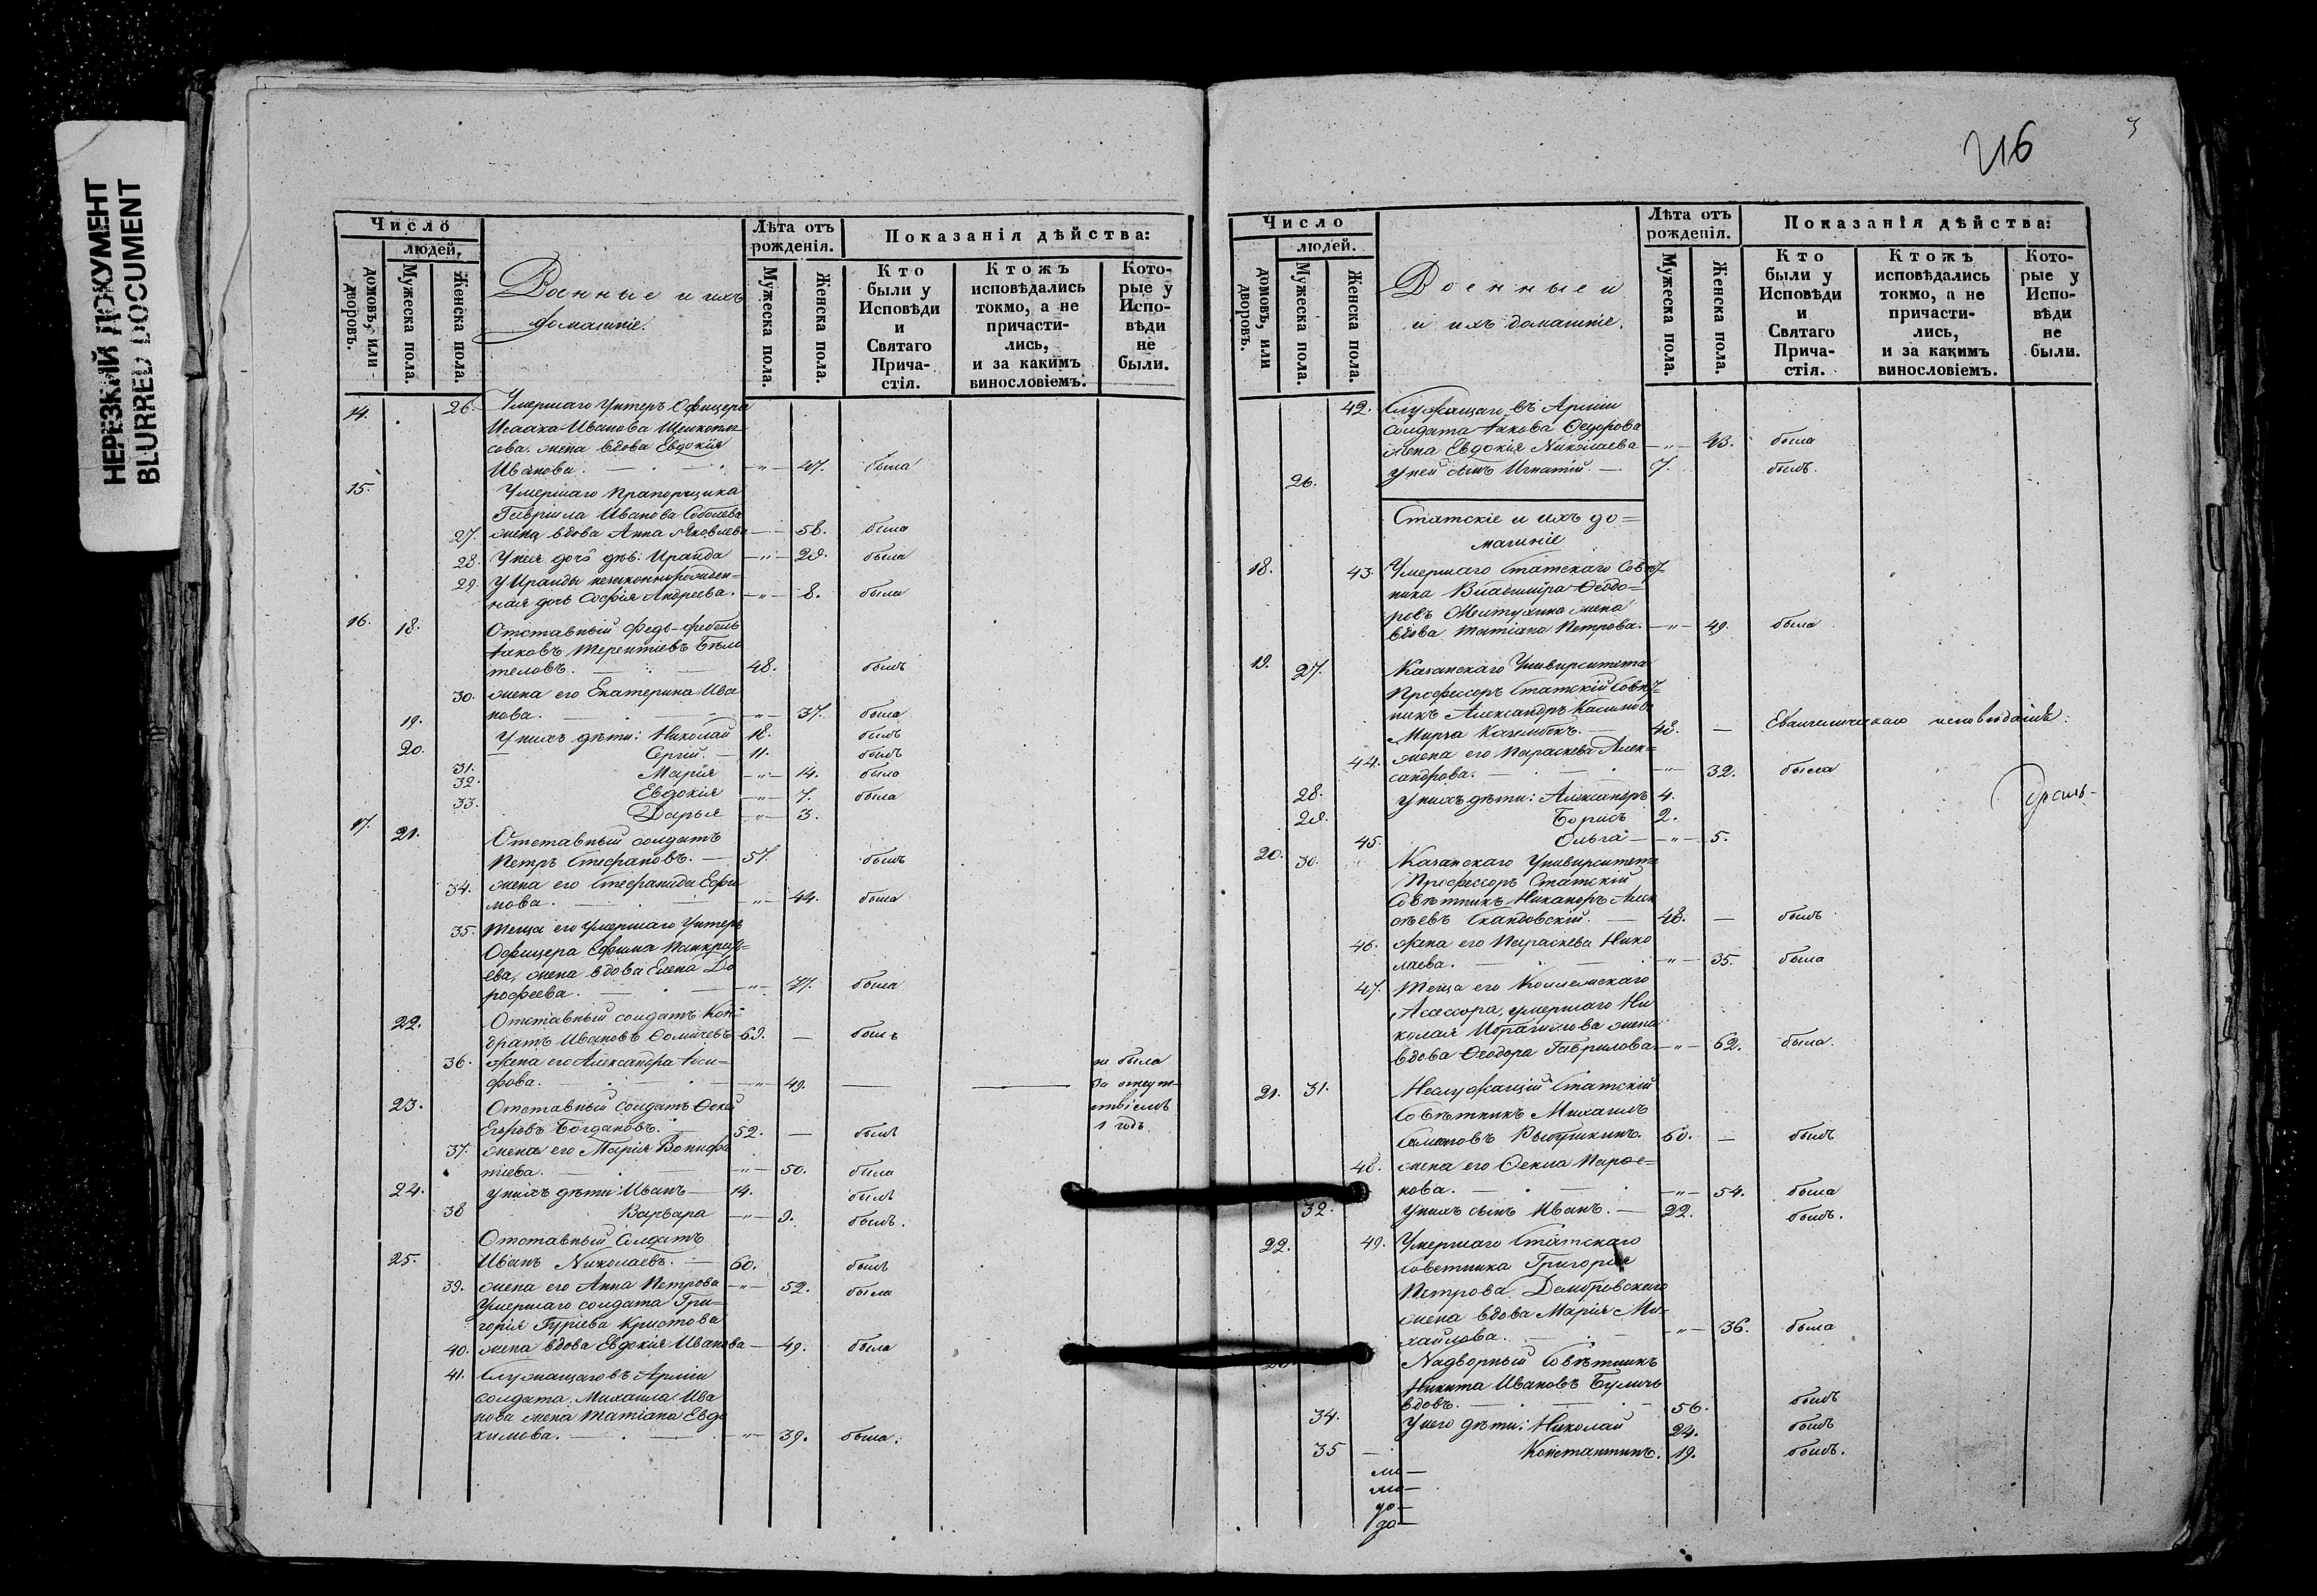 НЕРЕЗКИЙ ДОКУМЕНТ
BLURRED DOCUMENT
Число
людей.
домовъ, или дворовъ.
Мужеска пола.
Женска пола.
Военные и ихъ
домашніе.
Лѣта отъ рожденія.
Мужеска пола.
Женска пола.
Показанія дѣйства:
Кто были у Исповѣди и Святаго Прича-стія.
Ктожъ исповѣдались токмо, а не причасти-лись, и за какимъ винословіемъ.
Кото-рые у Испо-вѣди не были.
14. 26. Умершаго Унтеръ Офицера
Исаака Иванова
сова жена вдова Евдокія
Иванова. — „ — 47. была
15. Умершаго Прапорщика
Гавріила Иванова Соболева
27. жена вдова Анна Яковлева — 58. была
28. У нея дочь дѣв: Ираида — „ — 29. была
29. У Ираиды незаконнорожден=
ная дочь Софія Андреева. — „ — 8. была
16. 18. Отставный Федь-фебель
Іаковъ Терентіевъ Бѣло
теловъ. — 48. былъ
30. жена его Екатерина Ива
нова. — „ — 37. была
19. У нихъ дѣти: Николай 18. былъ
20. — Сергій. — 11. былъ
31. Марія — „ — 14. была
32. Евдокія — „ — 7. была
33. Дарья — „ — 3.
17. 21. Отставный солдатъ
Петръ Стефановъ. — 57. былъ
34. жена его Стефанида Ефи
мова. — „ — 44. была
35. Теща его умершаго Унтеръ
Офицера Ефима Панкрать=
ева, жена вдова Елена До
рофеева. — „ — 77. была
22. Отставный солдатъ Кон-
дратъ Ивановъ Ѳомичевъ 69. — былъ
36. Жена его Александра Іоси-
фова. — „ — 49. — —
не была
за отсут-
ствіемъ
1 годъ.
23. Отставный солдатъ
Егоровъ Богдановъ. — 52. — былъ
37. жена его Марія Вонифа
тіева. — „ — 50. была
24. У нихъ дѣти: Иванъ — 14. былъ
38 Варвара — „ — 9. былъ.
Отставный Солдатъ
25. Иванъ Николаевъ. — 60. былъ
39. жена его Анна Петрова — „ — 52. была
Умершаго солдата Гри=
горія Гуріева Христова
40. жена вдова Евдокія Иванова — 49. была
41. Служащаго въ Арміи
солдата Михаила Ива
нова жена Татіана Евдо
кимова. — „ — 39. была.
216
3
Число
людей.
домовъ, или дворовъ.
Мужеска пола.
Женска пола.
Военные и
и ихъ домашніе.
Лѣта отъ рожденія.
Мужеска пола.
Женска пола.
Показанія дѣйства:
Кто были у Исповѣди и Святаго Прича-стія.
Ктожъ исповѣдались токмо, а не причасти-лись, и за какимъ винословіемъ.
Кото-рые у Испо-вѣди не были.
42. Служащаго въ Арміи
Солдата Іакова Ѳедорова
жена Евдокія Николаева — „ — 43. была
26. У ней сынъ Игнатій. — 7. былъ.
Статскіе и ихъ до=
машніе
18. 43. Умершаго Статскаго Совѣт-
ника Владиміра Ѳеодо=
ровъ жена
вдова Татіана Петрова. — „ — 49. была
19. 27. Казанскаго Университета
Профессоръ Статскій Совѣт-
никъ Александръ Касимовъ
Мирза Каземъбекъ. — 48. — Евангелическаго исповѣданія.
44. жена его Параскева Алек=
сандрова. — „ — 32. была
28. У нихъ дѣти: Александръ 4.
29. Борисъ 2.
45. Ольга — „ — 5.
20. 30. Казанскаго Университета
Профессоръ Статскій
Совѣтникъ Никаноръ Алек
сѣевъ Скандовскій. — 48. — былъ
46. Жена его Параскева Нико
лаева. — „ — 35. была
47. Теща его Коллежскаго
Асессора, умершаго Ни
колая Ибрагимова жена
вдова Ѳеодора Гаврилова. — „ — 62. была.
21. 31. Неслужащій Статскій
Совѣтникъ Михаилъ
60. — былъ
48. жена его Ѳекла Парѳе=
нова. — „ — 54. была
32. У нихъ сынъ Иванъ. — 22. былъ.
22. 49. Умершаго Статскаго
советника Григорія
Петрова Домбровскаго
жена вдова Марія Ми-
хайлова. — „ — 36. была
Надворный Совѣтникъ
Никита Ивановъ Буличъ
вдовъ. — 56. былъ
34. У него дѣти: Николай 24. былъ
35 — Константинъ. 19. былъ.